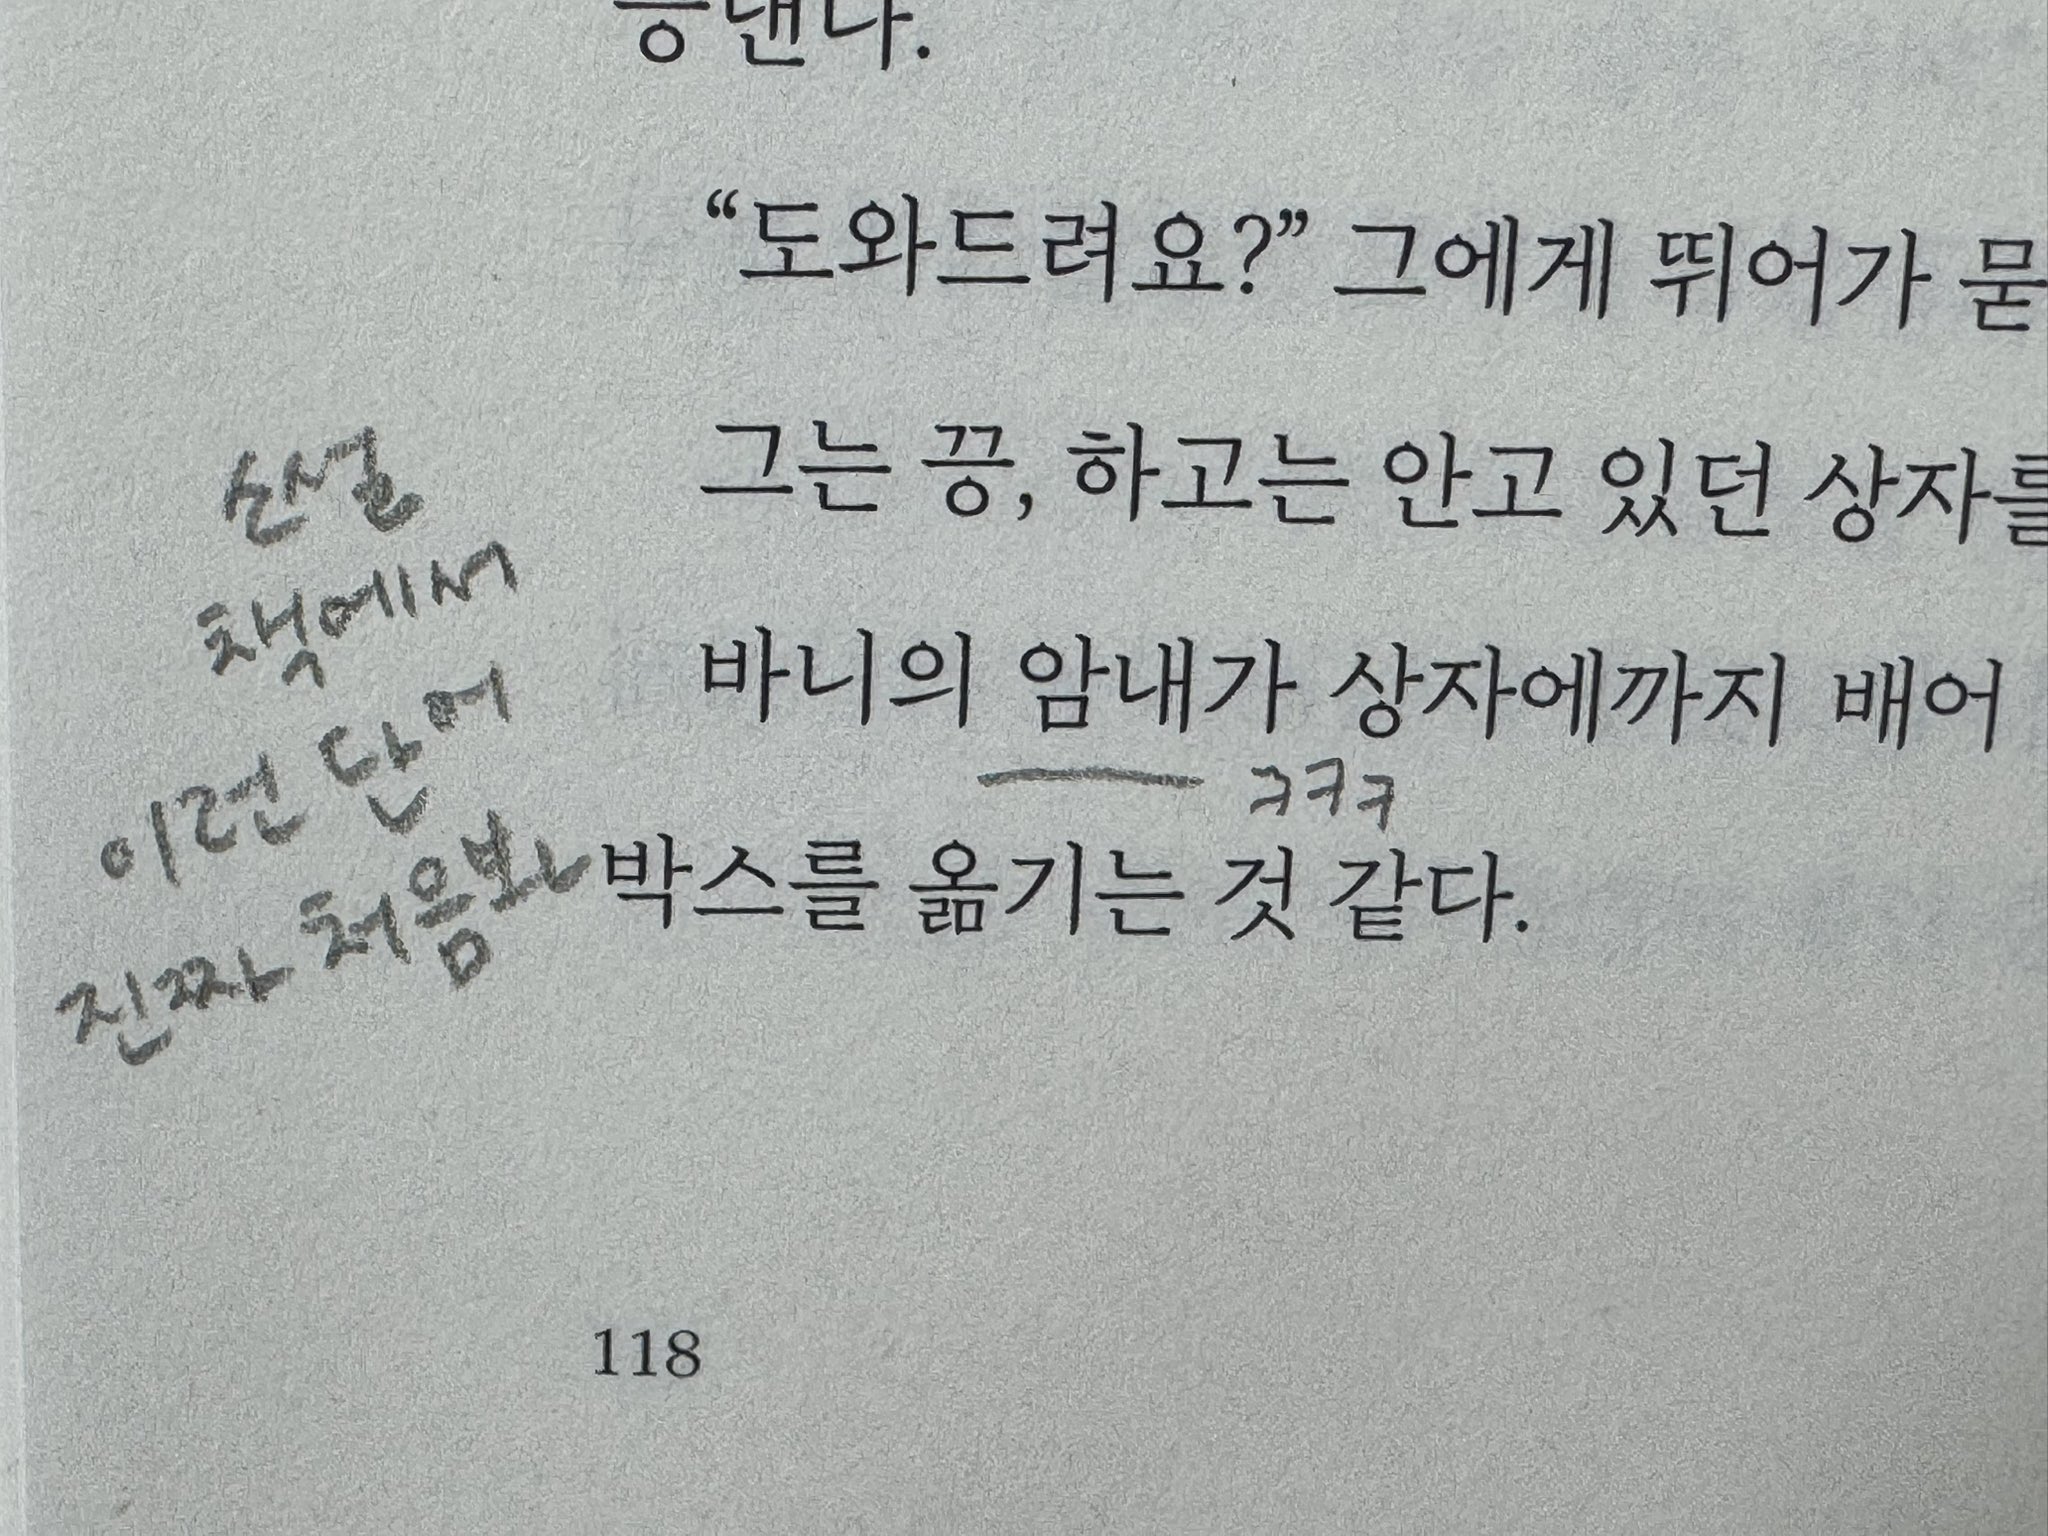 긍댄다.
“도와드려요?” 그에게 뛰어가 묻
그는 끙, 하고는 안고 있던 상자를
바니의 암내가 상자에까지 배어
ㅋㅋㅋ
박스를 옮기는 것 같다.
소설
책에서
이런 단어
진짜 처음봐
118